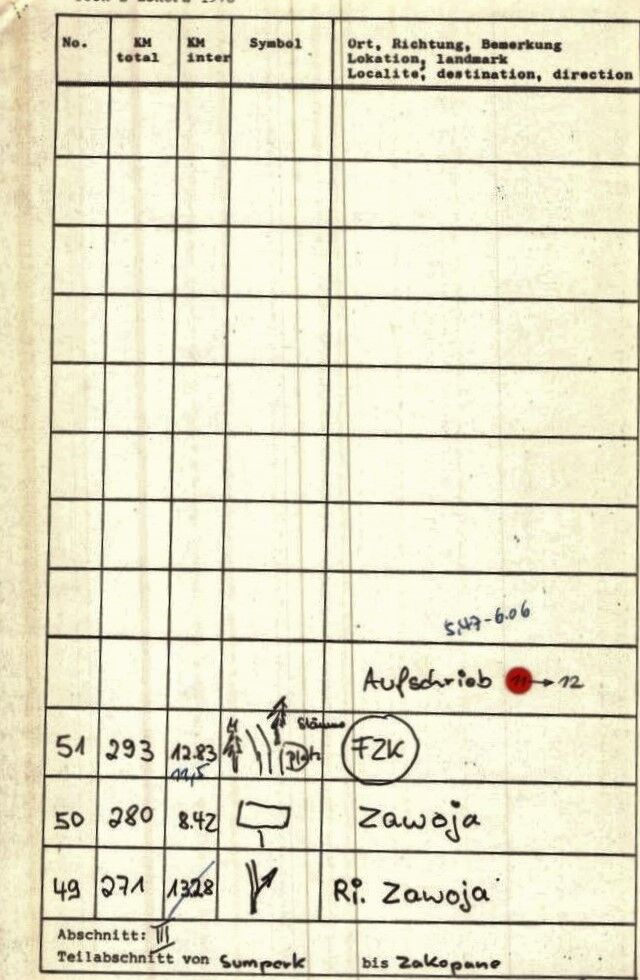 No.
KM total
KM inter
Symbol
Ort, Richtung, Bemerkung
Lokation, landmark
Localité, destination, direction
5,47-6.06
Aufschrieb 11 → 12
51 293 12.83 11,5 Platz FZK
50 280 8.42 Zawoja
49 271 13.28 Ri. Zawoja
Abschnitt: III
Teilabschnitt von Sumperk bis Zakopane